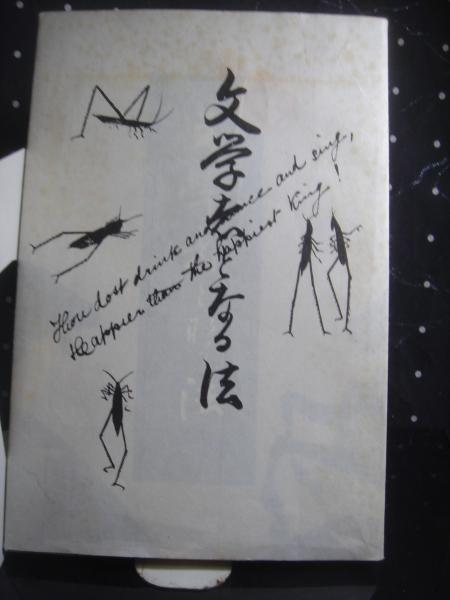 文学者となる法
Thou dost drink and dance and sing,
Happier than the happiest King!